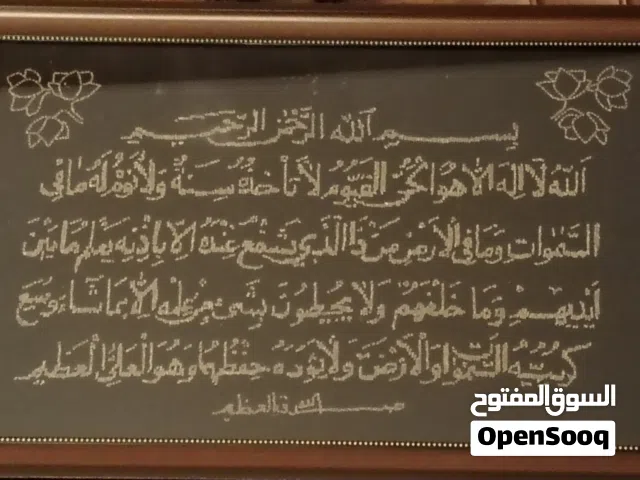 بسم الله الرحمن الرحيم
الله لا اله الا هو الحي القيوم لا تأخذه سنة ولا نوم له ما في
السموات وما في الارض من ذا الذي يشفع عنده الا باذنه يعلم ما بين
ايديهم وما خلفهم ولا يحيطون بشيء من علمه الا بما شاء وسع
كرسيه السموات والارض ولا يؤده حفظهما وهو العلي العظيم
صدق الله العظيم
السوق المفتوح
OpenSooq